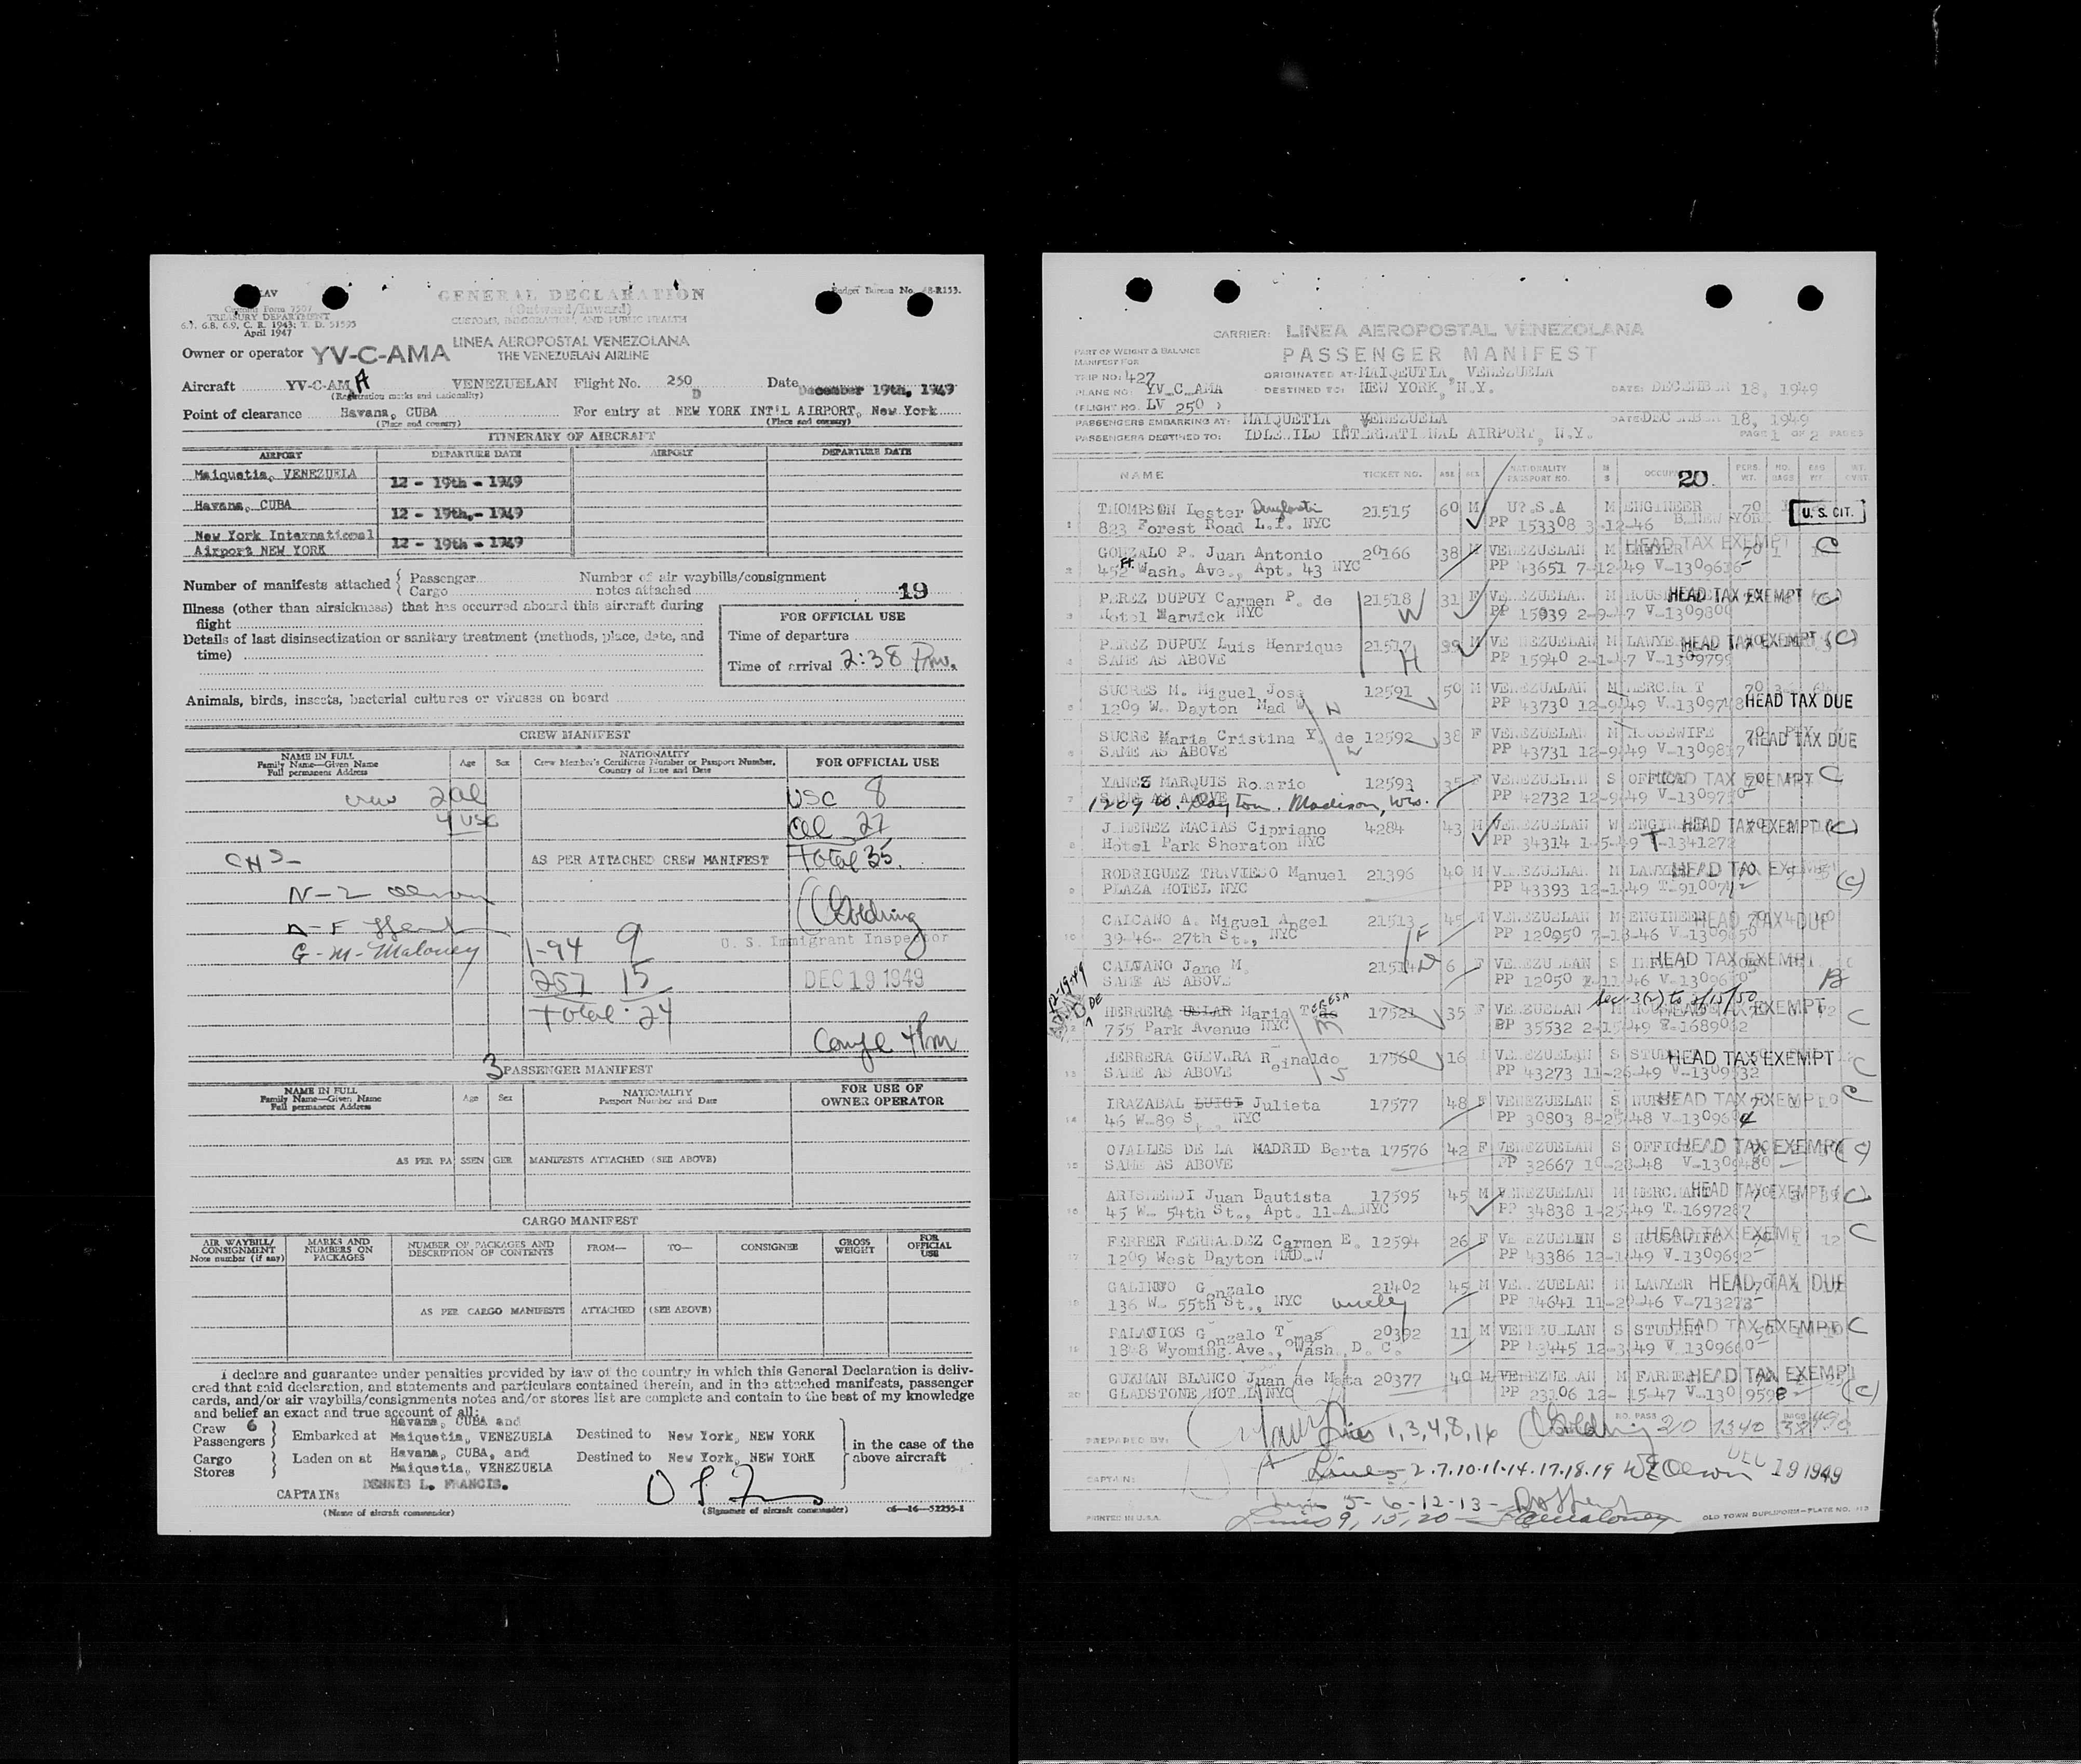 LAV
Customs Form 7507
TREASURY DEPARTMENT
6.7, 6.8, 6.9, C. R. 1943; T. D. 51595
April 1947
GENERAL DECLARATION
(Outward/Inward)
CUSTOMS, IMMIGRATION, AND PUBLIC HEALTH
Budget Bureau No. 48-R153.
Owner or operator YV-C-AMA LINEA AEROPOSTAL VENEZOLANA
THE VENEZUELAN AIRLINE
Aircraft YV-C-AMA VENEZUELAN Flight No. 250 D Date December 19th, 1949
(Registration marks and nationality)
Point of clearance Havana, CUBA For entry at NEW YORK INT'L AIRPORT, New York
(Place and country) (Place and country)
ITINERARY OF AIRCRAFT
AIRPORT DEPARTURE DATE AIRPORT DEPARTURE DATE
Maiquetia, VENEZUELA 12 - 19th - 1949
Havana, CUBA 12 - 19th,- 1949
New York International
Airport NEW YORK 12 - 19th - 1949
Number of manifests attached { Passenger Number of air waybills/consignment
Cargo notes attached 19
Illness (other than airsickness) that has occurred aboard this aircraft during
flight
Details of last disinsectization or sanitary treatment (methods, place, date, and
time)
FOR OFFICIAL USE
Time of departure
Time of arrival 2:38 Pm.
Animals, birds, insects, bacterial cultures or viruses on board
CREW MANIFEST
NAME IN FULL
Family Name—Given Name
Full permanent Address
Age Sex
NATIONALITY
Crew Member's Certificate Number or Passport Number,
Country of Issue and Date
FOR OFFICIAL USE
crew 2 al USC 8
4 USC al 27
AS PER ATTACHED CREW MANIFEST Total 35.
N-Z Olson
G-M-Maloney
1-94 9
257 15
Total 24
U. S. Immigrant Inspector
DEC 19 1949
3 PASSENGER MANIFEST
NAME IN FULL
Family Name—Given Name
Full permanent Address
Age Sex
NATIONALITY
Passport Number and Date
FOR USE OF
OWNER OPERATOR
AS PER PASSENGER MANIFESTS ATTACHED (SEE ABOVE)
CARGO MANIFEST
AIR WAYBILL/
CONSIGNMENT
Note number (if any)
MARKS AND
NUMBERS ON
PACKAGES
NUMBER OF PACKAGES AND
DESCRIPTION OF CONTENTS
FROM— TO— CONSIGNEE
GROSS
WEIGHT
FOR
OFFICIAL
USE
AS PER CARGO MANIFESTS ATTACHED (SEE ABOVE)
I declare and guarantee under penalties provided by law of the country in which this General Declaration is deliv-
ered that said declaration, and statements and particulars contained therein, and in the attached manifests, passenger
cards, and/or air waybills/consignments notes and/or stores list are complete and contain to the best of my knowledge
and belief an exact and true account of all:
Crew 6 Havana, CUBA and
Passengers Embarked at Maiquetia, VENEZUELA Destined to New York, NEW YORK
Cargo Laden on at Havana, CUBA, and Destined to New York, NEW YORK
Stores Maiquetia, VENEZUELA
in the case of the
above aircraft
CAPTAIN: DENNIS L. FRANCIS.
(Name of aircraft commander) (Signature of aircraft commander) c6—16—52255-1
CARRIER: LINEA AEROPOSTAL VENEZOLANA
PASSENGER MANIFEST
PART OF WEIGHT & BALANCE
MANIFEST FOR
TRIP NO: 427 ORIGINATED AT: MAIQEUTIA, VENEZUELA
PLANE NO: YV C AMA DESTINED TO: NEW YORK, N.Y. DATE: DECEMBER 18, 1949
(FLIGHT NO. LV 250 )
PASSENGERS EMBARKING AT: MAIQUETIA VENEZUELA DATE: DECEMBER 18, 1949
PASSENGERS DESTINED TO: IDLEWILD INTERNATIONAL AIRPORT, N.Y. PAGE 1 OF 2 PAGES
NAME TICKET NO. AGE SEX NATIONALITY PASSPORT NO. M S 20 PERS. WT. NO. BAGS BAG WT.
1 THOMPSON Lester 21515 60 M U?.S.A M ENGINEER 70 U. S. CIT.
823 Forest Road L.I. NYC PP 153308 3-12-46
2 GONZALO P. Juan Antonio 20166 38 M VENEZUELAN M LAWYER HEAD TAX EXEMPT 70 1 C
452 Wash. Ave., Apt. 43 NYC PP 43651 7-12-49 V-1309636
3 PEREZ DUPUY Carmen P. de 21518 W 31 F VENEZUELAN M HEAD TAX EXEMPT C
Hotel Warwick NYC PP 15939 2-9-47 V-1309800
4 PEREZ DUPUY Luis Henrique 21517 H 39 M VENEZUELAN M LAWYE HEAD TAX EXEMPT (C)
SAME AS ABOVE PP 15940 2-1-47 V-1309799
5 SUCRES M. Miguel Jose 12591 50 M VENEZUALAN M MERCHANT 70
1209 W. Dayton Mad W. H PP 43730 12-9-49 HEAD TAX DUE
6 SUCRE Maria Cristina Y. de 12592 38 F VENEZUELAN M HOUSEWIFE 70
SAME AS ABOVE W PP 43731 12-9-49 V-1309817 HEAD TAX DUE
7 YANES MARQUIS Rosario 12593 35 F VENEZUELAN S HEAD TAX EXEMPT C
SAME AS ABOVE PP 42732 12-9-49
1209 W. Dayton. Madison, Wis.
8 JIMENEZ MACIAS Cipriano 4284 43 M VENEZUELAN W HEAD TAX EXEMPT (C)
Hotel Park Sheraton NYC PP 34314 1-5-49 T-1341272
9 RODRIGUEZ TRAVIESO Manuel 21396 40 M VENEZUELAN M HEAD TAX EXEMPT (C)
PLAZA HOTEL NYC PP 43393 12-1-49
10 CALCANO A. Miguel Angel 21513 45 M VENEZUELAN M ENGINEER HEAD TAX DUE
39-46- 27th St., NYC F PP 120950 7-18-46
11 CALVANO Jane M. 21514 D 6 F VENEZUELAN S HEAD TAX EXEMPT
SAME AS ABOVE PP 12050
12 HERRERA USLAR Maria TERESA DE 17521 35 F VENEZUELAN HEAD TAX EXEMPT C
755 Park Avenue NYC M PP 35532 2-15-49
13 HERRERA GUEVARA Reinaldo 17560 16 VENEZUELAN S HEAD TAX EXEMPT C
SAME AS ABOVE S PP 43273 11-26-49
14 IRAZABAL LUIGI Julieta 17577 48 F VENEZUELAN S HEAD TAX EXEMPT C
46 W-89 St., NYC PP 30803
15 OVALLES DE LA MADRID Berta 17576 42 F VENEZUELAN S HEAD TAX EXEMPT (C)
SAME AS ABOVE PP 32667 10-28-48
16 ARISMENDI Juan Bautista 17595 45 M VENEZUELAN M HEAD TAX EXEMPT (C)
45 W- 54th St., Apt. 11-A NYC PP 34838 1-25-49 T-1697287
17 FERRER FERNANDEZ Carmen E. 12594 26 F VENEZUELAN S HEAD TAX EXEMPT 12 C
1209 West Dayton MAD W PP 43386 12-1-49 V-1309692
18 GALINGO Gonzalo 21402 45 M VENEZUELAN M LAWYER HEAD TAX DUE
136 W- 55th St., NYC uncle
19 PALACIOS Gonzalo Tomas 20392 11 M VENEZUELAN S STUDENT HEAD TAX EXEMPT C
1848 Wyoming Ave., Wash. D. C. 12-3-49
20 GUZMAN BLANCO Juan de Mata 20377 40 M VENEZUELAN M FARMER HEAD TAX EXEMPT
GLADSTONE HOTEL NYC PP 23106 12- 15-47 (C)
PREPARED BY: Lines 1, 3, 4, 8, 16 NO. PASS 20 1340
CAPTAIN: Lines 2.7.10.11.14.17.18.19 WE Olson DEC 19 1949
Lines 5-6-12-13-
Lines 9, 15, 20
PRINTED IN U.S.A. OLD TOWN DUPLIFORM—PLATE NO.